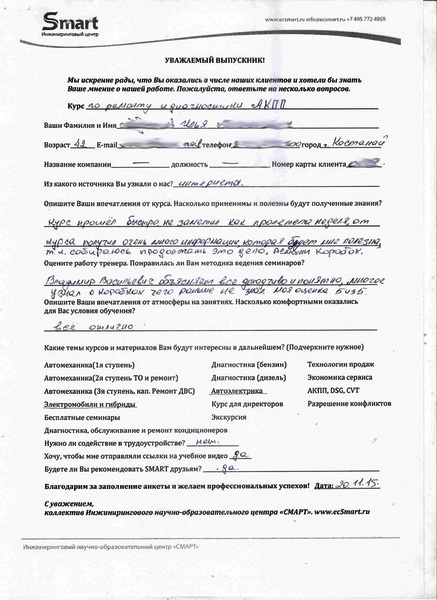 Smart
Инжиниринговый центр
www.ecsmart.ru info@ecsmart.ru +7 495 772 4959
УВАЖАЕМЫЙ ВЫПУСКНИК!
Мы искренне рады, что Вы оказались в числе наших клиентов и хотели бы знать
Ваше мнение о нашей работе. Пожалуйста, ответьте на несколько вопросов.
Курс по ремонту и диагностики АКПП
Ваши Фамилия и Имя Илья
Возраст 43 E-mail телефон город Костанай
Название компании — должность — Номер карты клиента
Из какого источника Вы узнали о нас? интернета.
Опишите Ваши впечатления от курса. Насколько применимы и полезны будут полученные знания?
Курс прошёл быстро не заметил как пролетела неделя, от
курса получил очень много информации которая будет мне полезна,
т.к. собираюсь продолжать это дело, ремонт коробок.
Оцените работу тренера. Понравилась ли Вам методика ведения семинаров?
Владимир Васильевич объясняет все доходчиво и понятно, многое
узнал о коробках чего раньше не знал моя оценка 5 из 5.
Опишите Ваши впечатления от атмосферы на занятиях. Насколько комфортными оказались
для Вас условия обучения?
всё отлично
Какие темы курсов и материалов Вам будут интересны в дальнейшем? (Подчеркните нужное)
Автомеханика(1я ступень) Диагностика (бензин) Технологии продаж
Автомеханика(2я ступень ТО и ремонт) Диагностика (дизель) Экономика сервиса
Автомеханика (3я ступень, кап. Ремонт ДВС) Автоэлектрика АКПП, DSG, CVT
Электромобили и гибриды Курс для директоров Разрешение конфликтов
Бесплатные семинары Экскурсия
Диагностика, обслуживание и ремонт кондиционеров
Нужно ли содействие в трудоустройстве? нет.
Хочу, чтобы мне отправляли ссылки на учебное видео да
Будете ли Вы рекомендовать SMART друзьям? да.
Благодарим за заполнение анкеты и желаем профессиональных успехов! Дата: 20.11.15.
С уважением,
коллектив Инжинирингового научно-образовательного центра «СМАРТ». www.ecSmart.ru
Инжиниринговый научно-образовательний центр «СМАРТ»